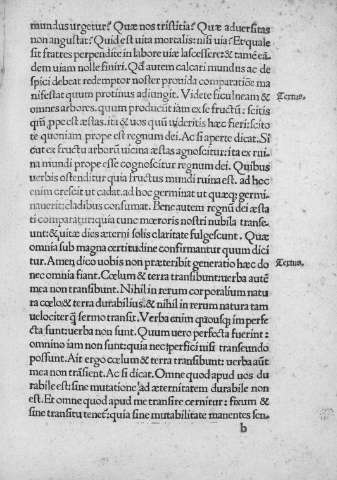 mundus urgetur? Quæ nos tristitia? Quæ aduersitas
non angustat? Quid est uita mortalis: nisi uia? Et quale
sit fratres perpendite in labore uiæ lascescere: & tamē eā-
dem uiam nolle finiri. Qđ autem calcari mundus ac de
spici debeat redemptor noster prouida comparatiōe ma
nifestat quum protinus adiungit. Videte ficulneam &
omnes arbores. quum producūt iam ex se fructū: scitis
qm̄ ppe est æstas. ita & uos quū uideritis hæc fieri: scito
te quoniam prope est regnum dei. Ac si aperte dicat. Si
cut ex fructu arborū uicina æstas agnoscitur: ita ex rui
na mundi prope esse cognoscitur regnum dei. Quibus
uerbis ostenditur quia fructus mundi ruina est. ad hoc
enim crescit ut cadat. ad hoc germinat ut quæq; germi-
nauerit: cladibus consumat. Bene autem regnū dei æsta
ti comparatur: quia tunc mœroris nostri nubila transe-
unt: & uitæ dies æterni solis claritate fulgescunt. Quæ
omnia sub magna certitudine confirmantur quum dici
tur. Amen dico uobis non præteribit generatio hæc do-
nec omnia fiant. Cœlum & terra transibunt: uerba autē
mea non transibunt. Nihil in rerum corporalium natu
ra cœlo & terra durabilius: & nihil in rerum natura tam
uelociter q̄ sermo transit. Verba enim quousq; imperfe
cta sunt: uerba non sunt. Quum uero perfecta fuerint:
omnino iam non sunt: quia nec perfici nisi transeundo
possunt. Ait ergo cœlum & terra transibunt: uerba aūt
mea non trāsient. Ac si dicat. Omne quod apud uos du
rabile est: sine mutatione ad æternitatem durabile non
est. Et omne quod apud me transire cernitur: fixum &
sine transitu tenet: quia sine mutabilitate manentes sen-
b
Textus.
Textus.